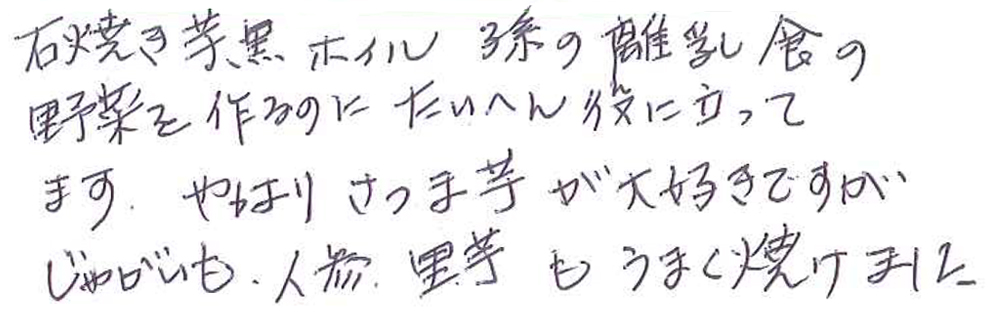 石焼き芋黒ホイル 孫の離乳食の
野菜を作るのにたいへん役に立って
ます. やはりさつま芋が大好きですが
じゃがいも.人参.里芋もうまく焼けました